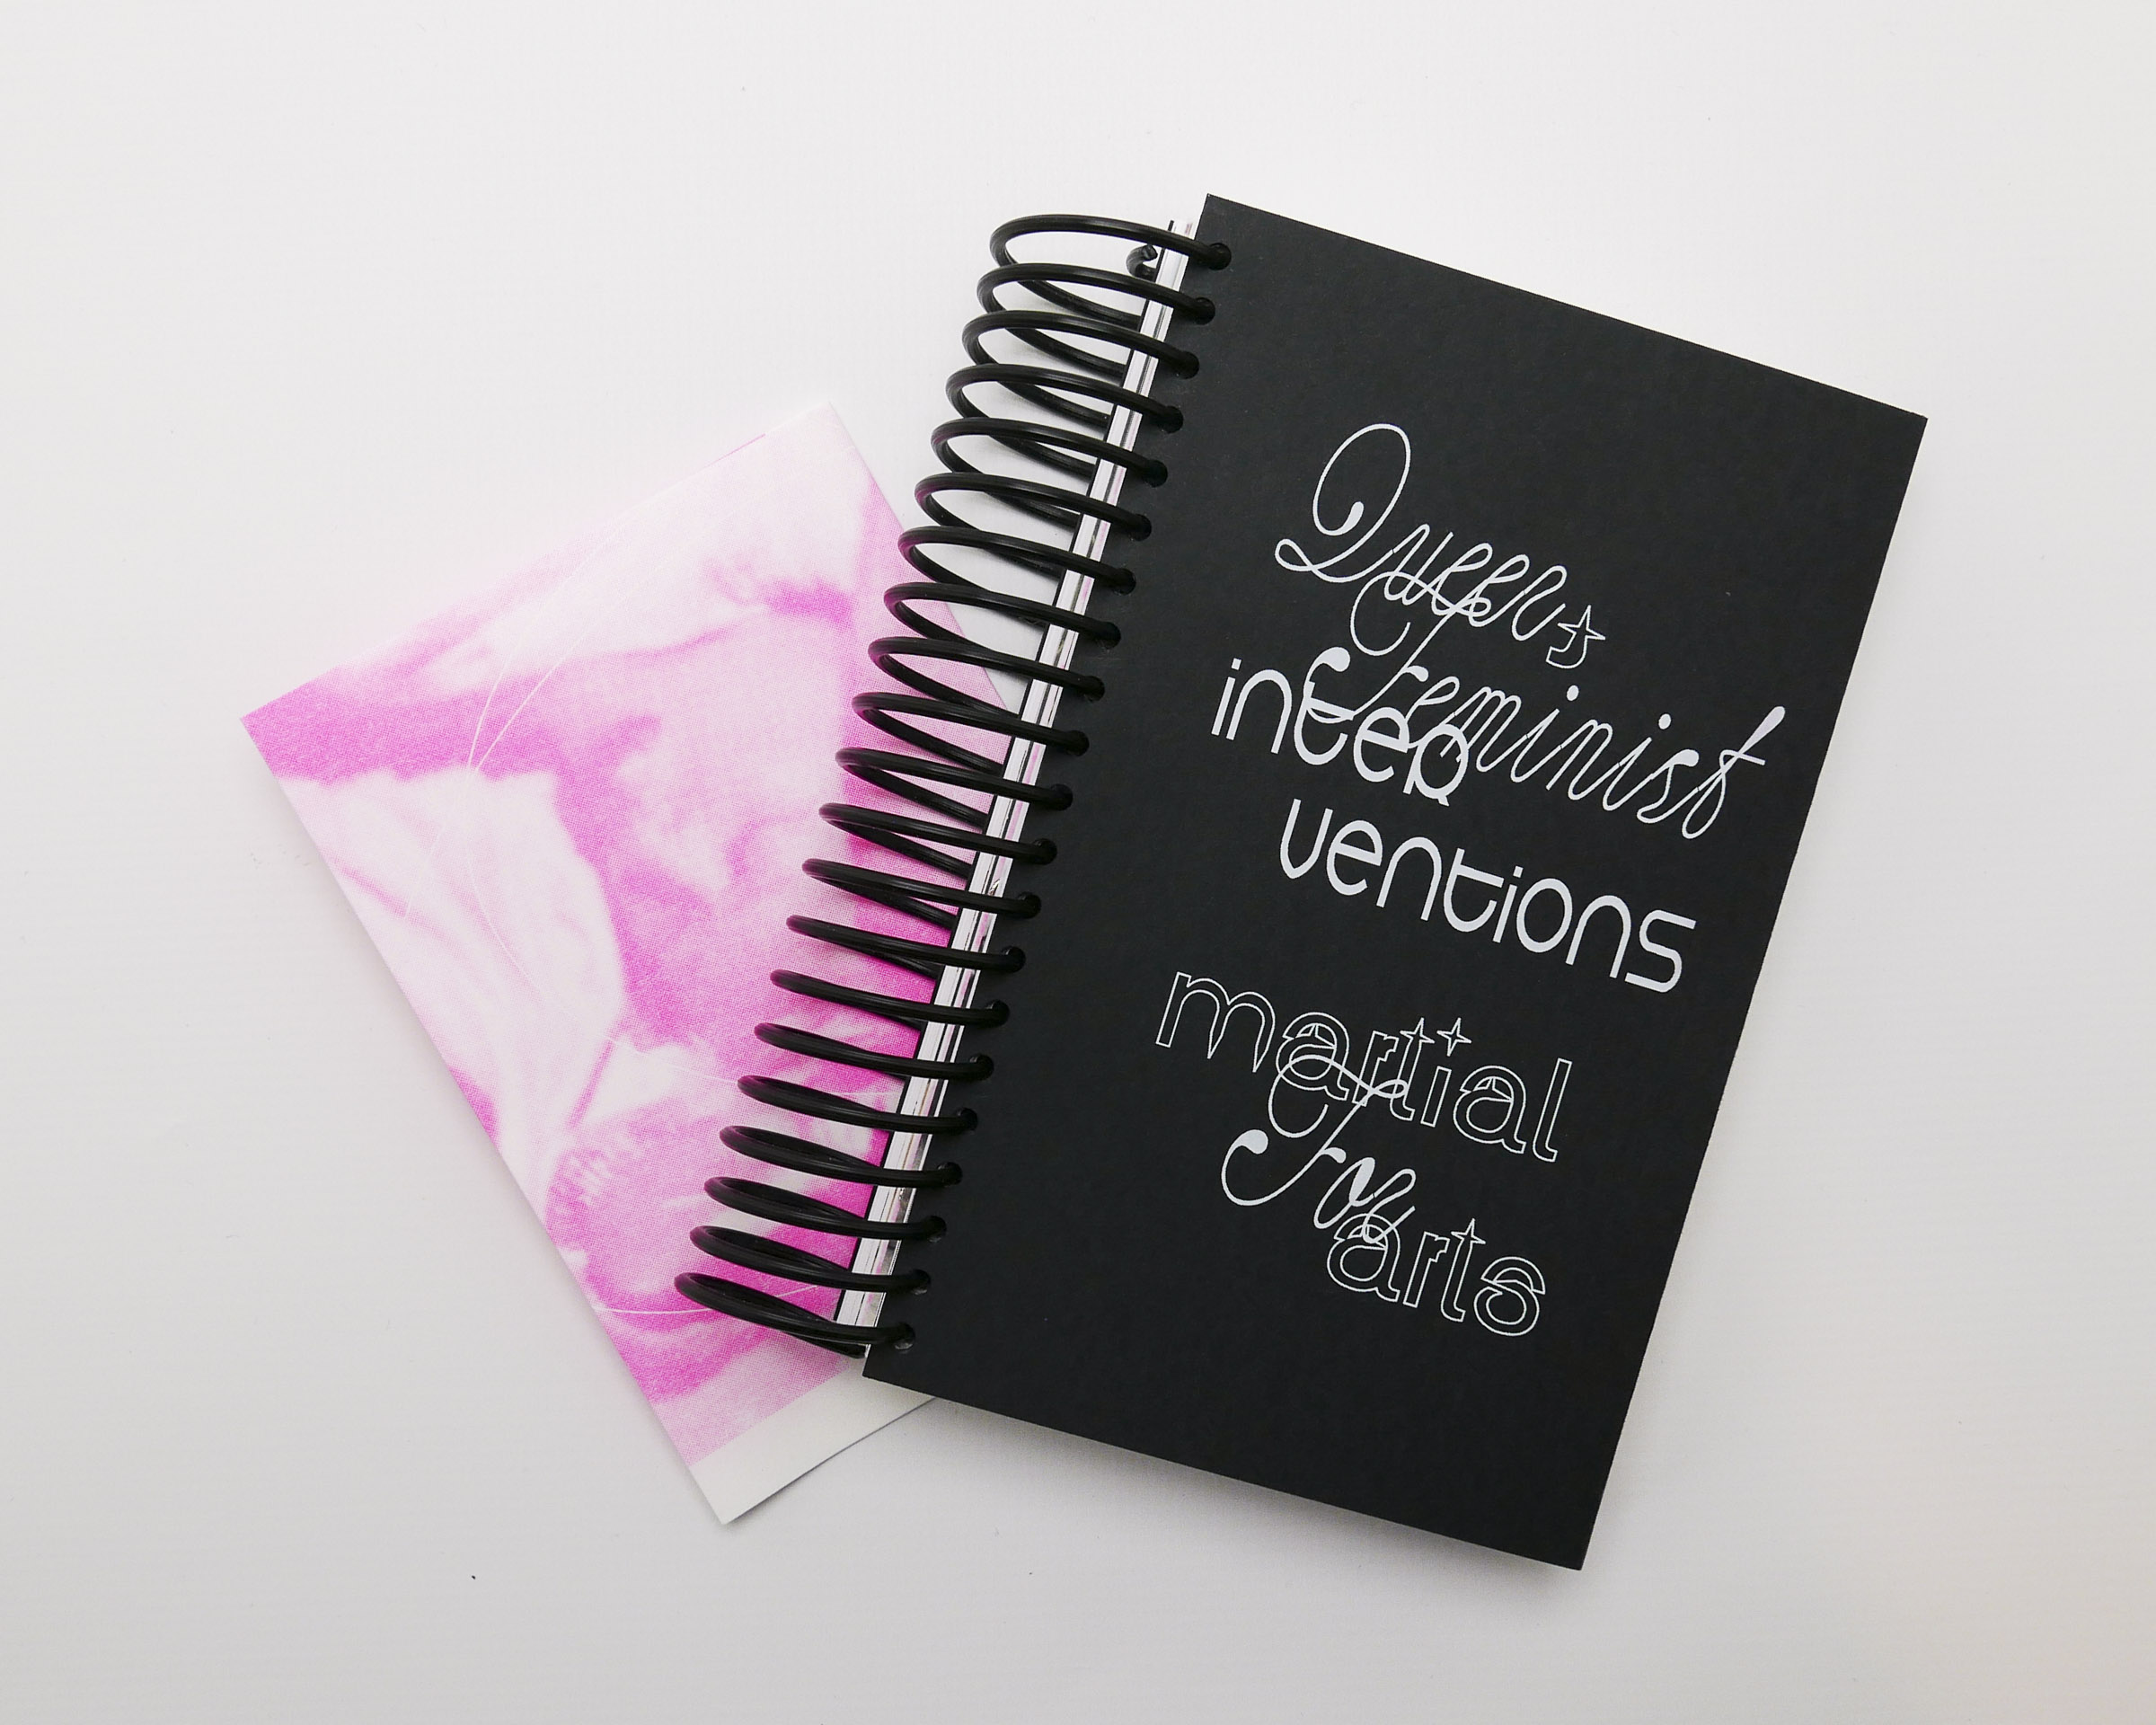 Queer,
Feminist
inter
ventions
martial
For
arts